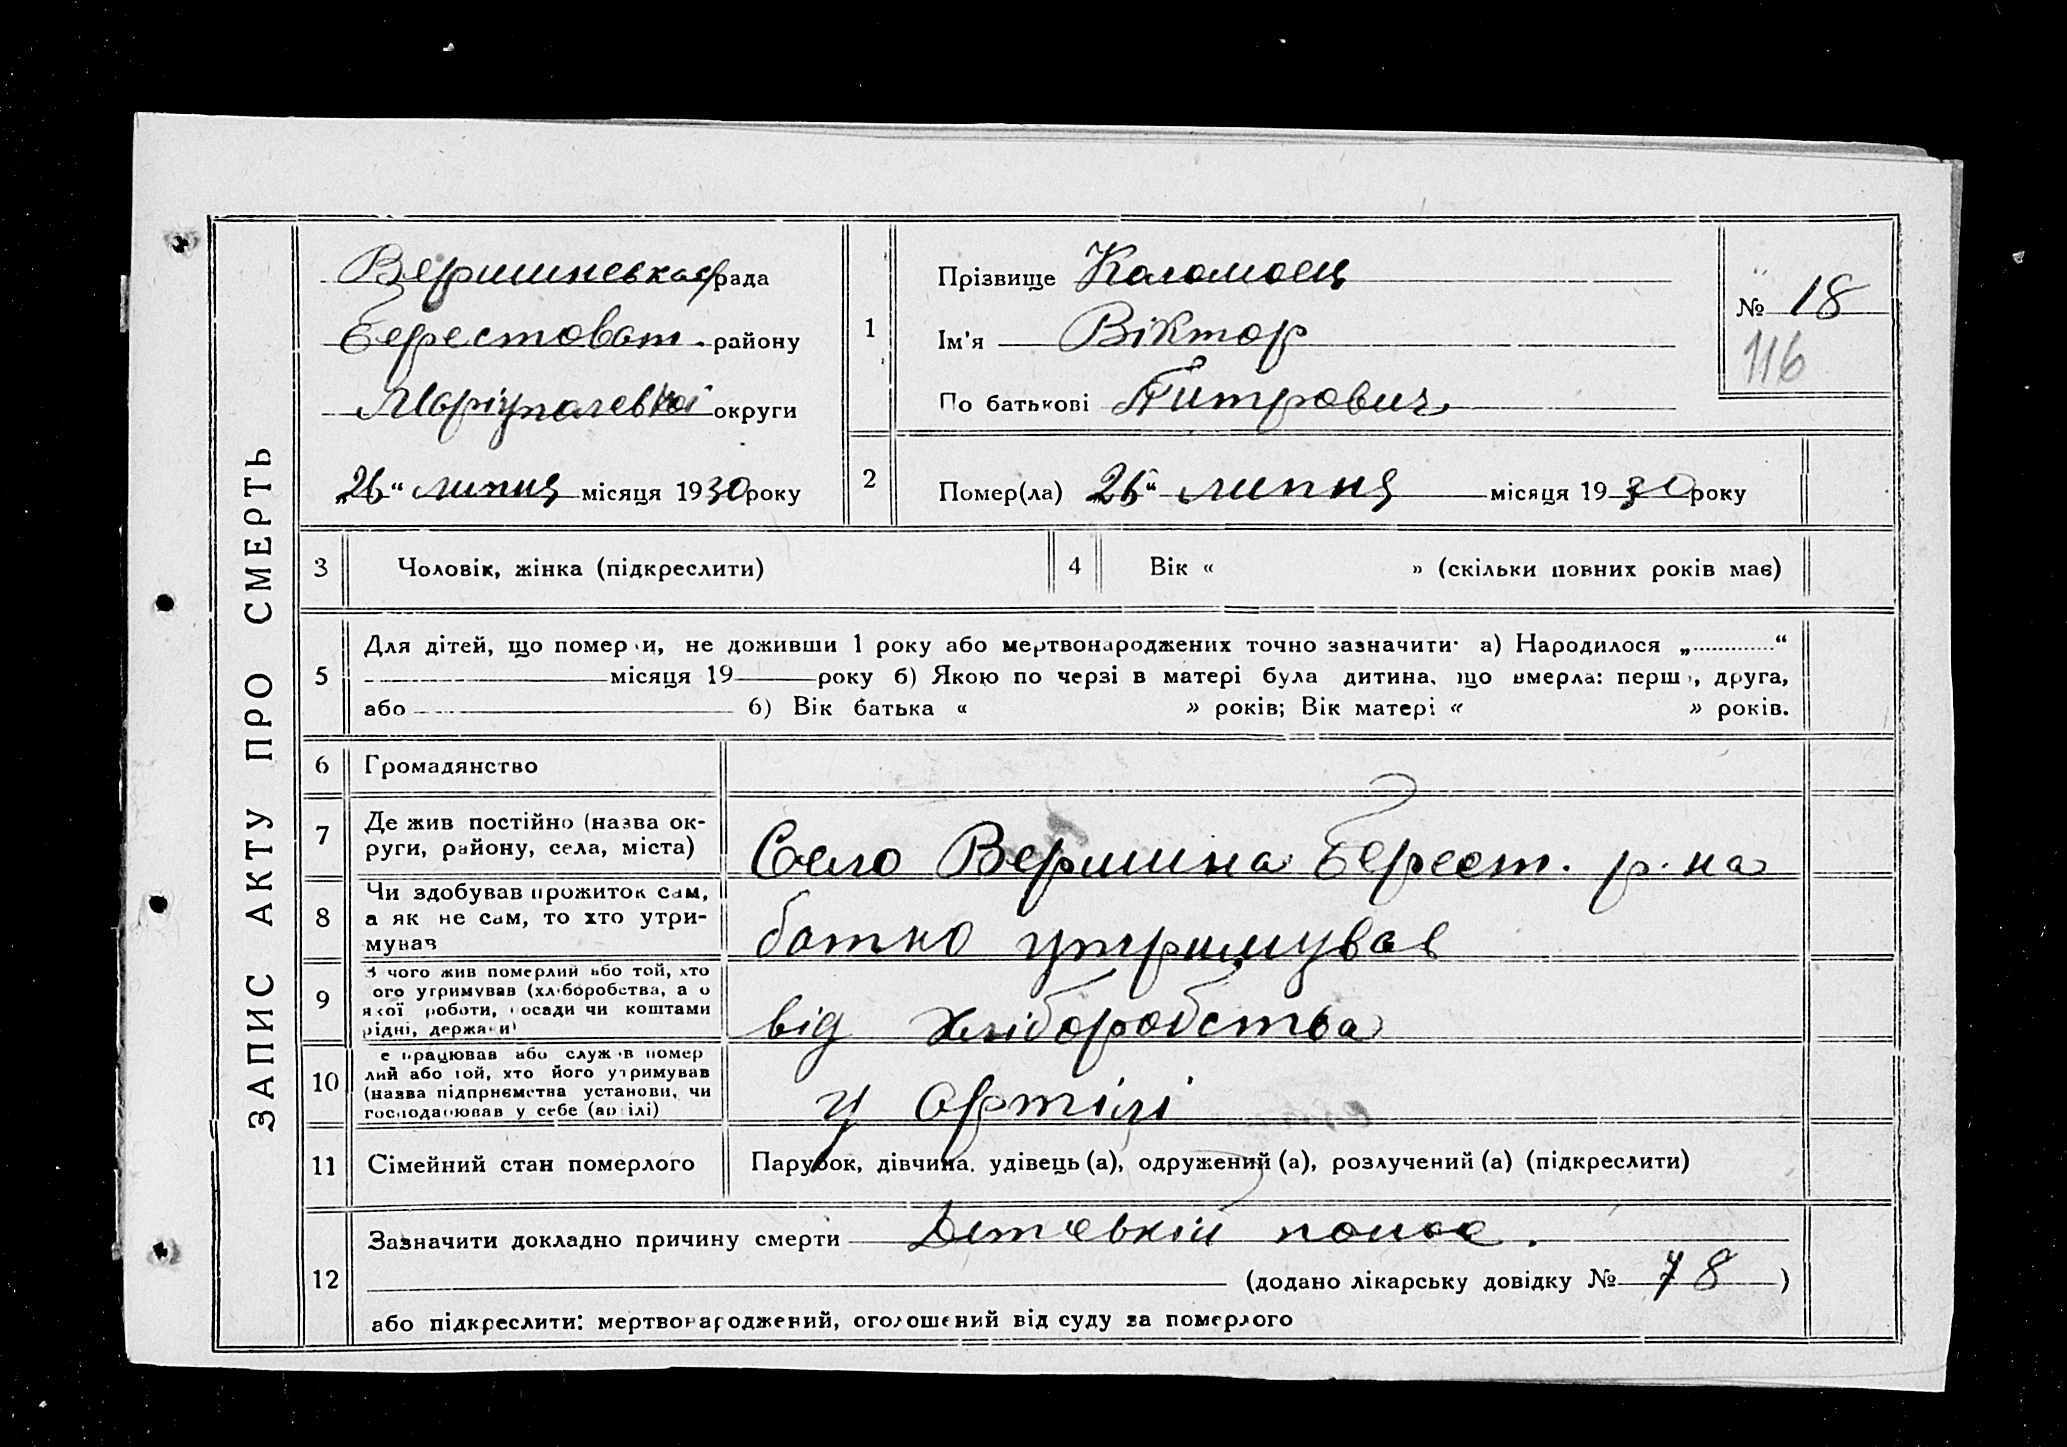 ЗАПИС АКТУ ПРО СМЕРТЬ
Вершиневская рада
Берестоват. району
Маріуполевкої округи
„26“ липня місяця 1930 року
1
Прізвище Коломоец
Ім'я Віктор
По батькові Питрович
№ 18
116
2
Помер(ла) „26“ липня місяця 1930 року
3 Чоловік, жінка (підкреслити)
4 Вік « » (скільки повних років має)
5
Для дітей, що померли, не доживши 1 року або мертвонароджених точно зазначити: а) Народилося „ “
місяця 19 року б) Якою по черзі в матері була дитина, що вмерла: перша, друга,
або 6) Вік батька « » років; Вік матері « » років.
6 Громадянство
7 Де жив постійно (назва ок-
руги, району, села, міста)
Село Вершина Берест. р-на
8 Чи здобував прожиток сам,
а як не сам, то хто утри-
мував
батко утримував
9 З чого жив померлий або той, хто
ого утримував (хліборобства, а о
якої роботи, посади чи коштами
рідні, держави)
від хліборобства
10 е працював або служив помер
лий або той, хто його утримував
(назва підприємства установи, чи
господарював у себе (артілі)
у Артілі
11 Сімейний стан померлого
Парубок, дівчина, удівець (а), одружений (а), розлучений (а) (підкреслити)
12
Зазначити докладно причину смерти Детчевкій понос.
(додано лікарську довідку № 78 )
або підкреслити: мертвонароджений, оголошений від суду за померлого